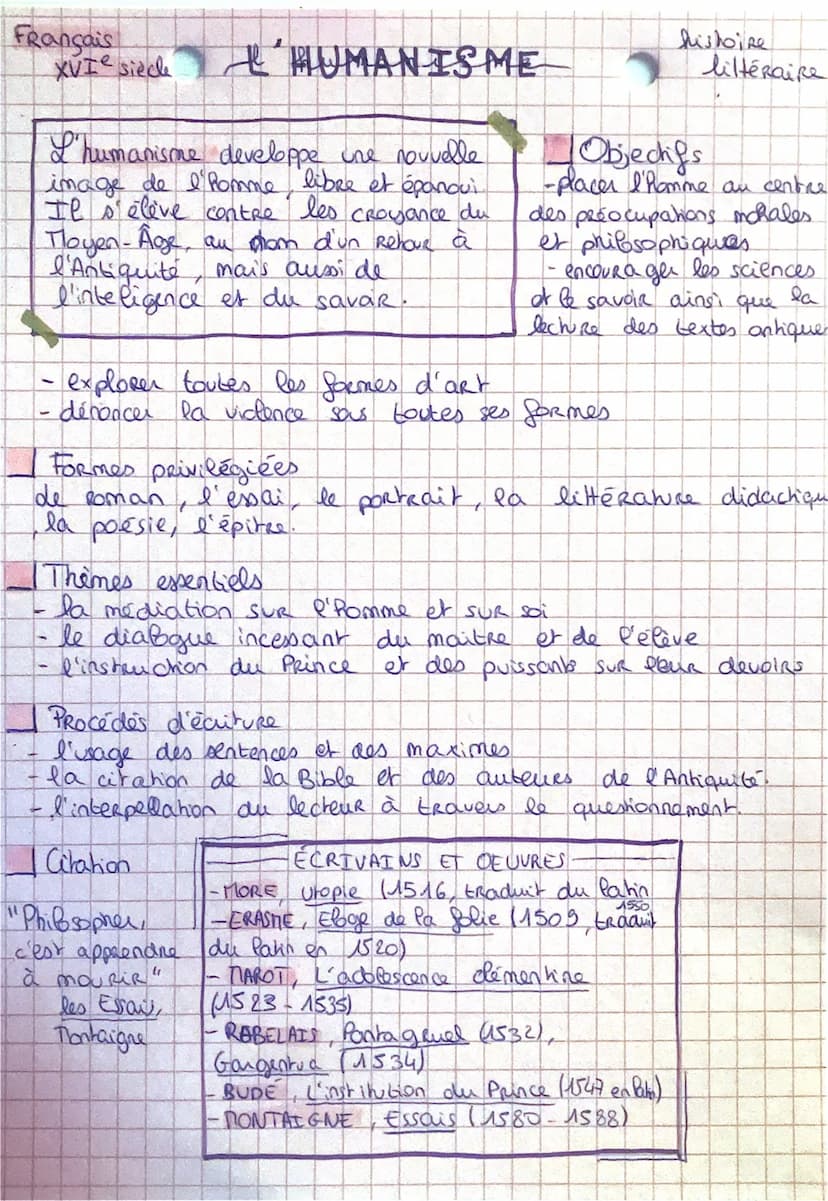 Français
XVIe siècle
L'HUMANISME
histoire
littéraire
L'humanisme developpe une nouvelle
image de l'Homme, libre et épanoui
Il s'élève contre les croyance du
Moyen-Âge, au nom d'un retour à
l'Antiquité, mais aussi de
l'inteligence et du savoir.
Objectifs
-placer l'Homme au centre
des préocupations morales
et philosophiques
- encourager les sciences
et le savoir ainsi que la
lecture des textes antique
- explorer toutes les formes d'art
- dénoncer la violence sous toutes ses formes
Formes privilégiées
de roman, l'essai, le portrait, la littérature didactiqu
, la poésie, l'épitre.
Thèmes essentiels
- la médiation sur l'Homme et sur soi
- le dialogue incessant du maitre et de l'élève
- l'instruction du Prince et des puissants sur leur devoirs
Procédés d'écriture
- l'usage des sentences et des maximes
- la citation de la Bible et des auteurs de l'Antiquité.
- l'interpellation du lecteur à travers le questionnement.
Citation
"Philosopher,
c'est apprendre
à mourir"
les Essais,
Montaigne
ÉCRIVAINS ET OEUVRES
- MORE, Utopie (1516, traduit du latin
1550
- ERASME, Eloge de la folie (1509, traduit
du latin en 1520)
- MAROT, L'adolescence clémentine
(1523 - 1535)
- RABELAIS, Pantagruel (1532),
Gargantua (1534)
- BUDÉ, L'institution du Prince (1547 en latin)
- MONTAIGNE, Essais (1580 - 1588)